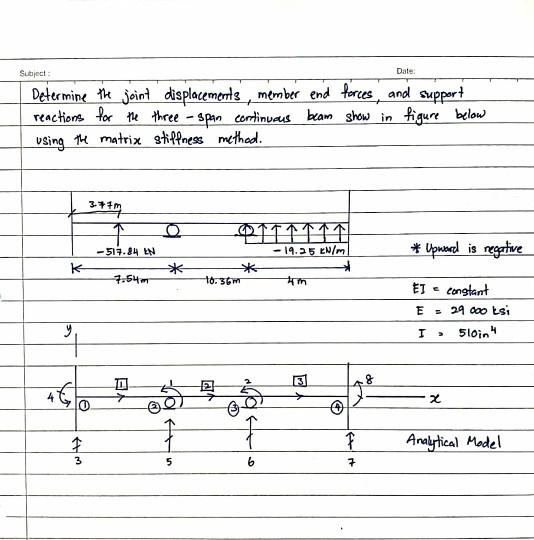 Subject :
Date:
Determine the joint displacements, member end forces, and support
reactions for the three-span continuous beam show in figure below
using the matrix stiffness method.
3.77m
-517.84 kN
-19.25 kN/m
* Upward is negative
7.54m
10.36m
4m
EI = constant
E = 29 000 ksi
I = 510in⁴
y
1
1
2
2
3
8
4
①
②
③
④
x
3
5
6
7
Analytical Model